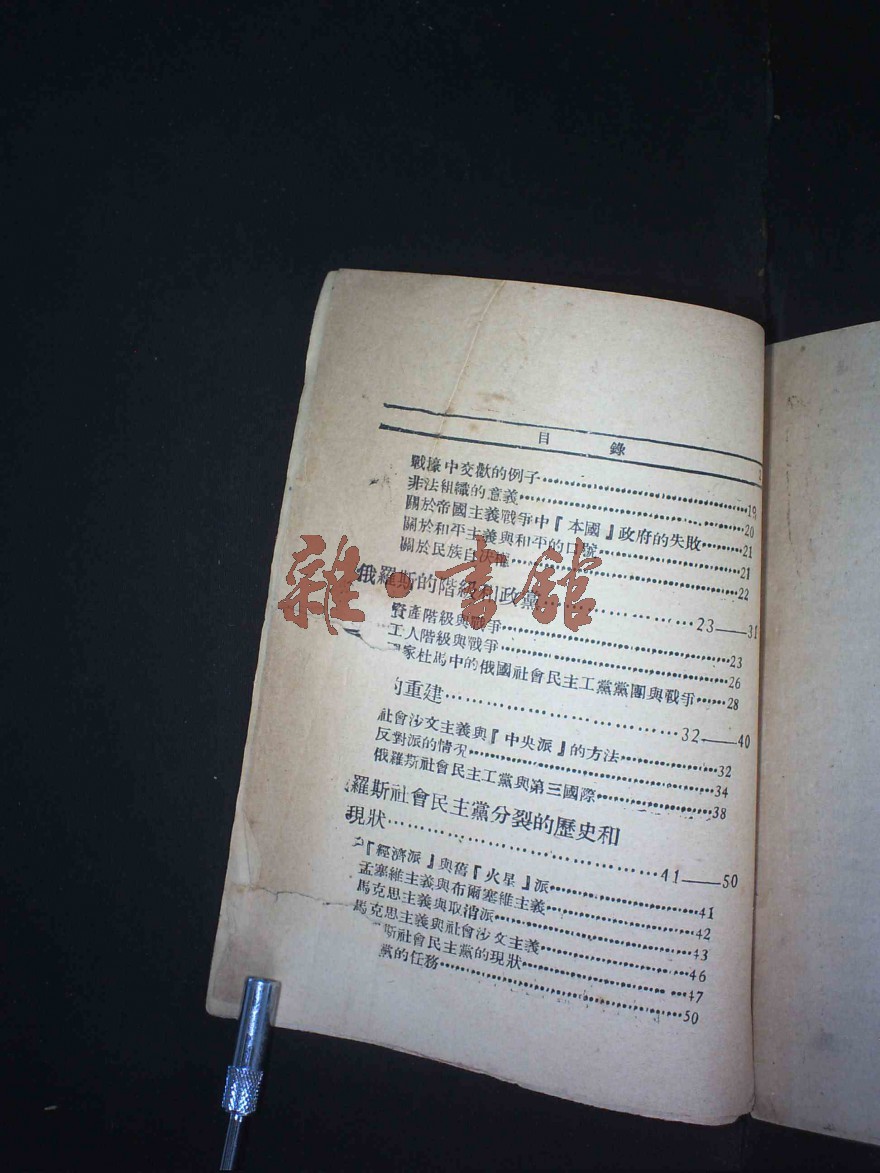 目 錄
戰壕中交歡的例子……………………19
非法組織的意義……………………20
關於帝國主義戰爭中『本國』政府的失敗……21
關於和平主義與和平的口號……………………21
關於民族自決權……………………22
俄羅斯的階級和政黨……………………23——31
資產階級與戰爭……………………23
工人階級與戰爭……………………26
家杜馬中的俄國社會民主工黨黨團與戰爭……28
的重建……………………32——40
社會沙文主義與『中央派』的方法……………………32
反對派的情況……………………34
俄羅斯社會民主工黨與第三國際……………………38
羅斯社會民主黨分裂的歷史和
現狀……………………41——50
『經濟派』與舊『火星』派……………………41
孟塞維主義與布爾塞維主義……………………42
馬克思主義與取消派……………………43
馬克思主義與社會沙文主義……………………46
斯社會民主黨的現狀……………………47
黨的任務……………………50
雜·書館